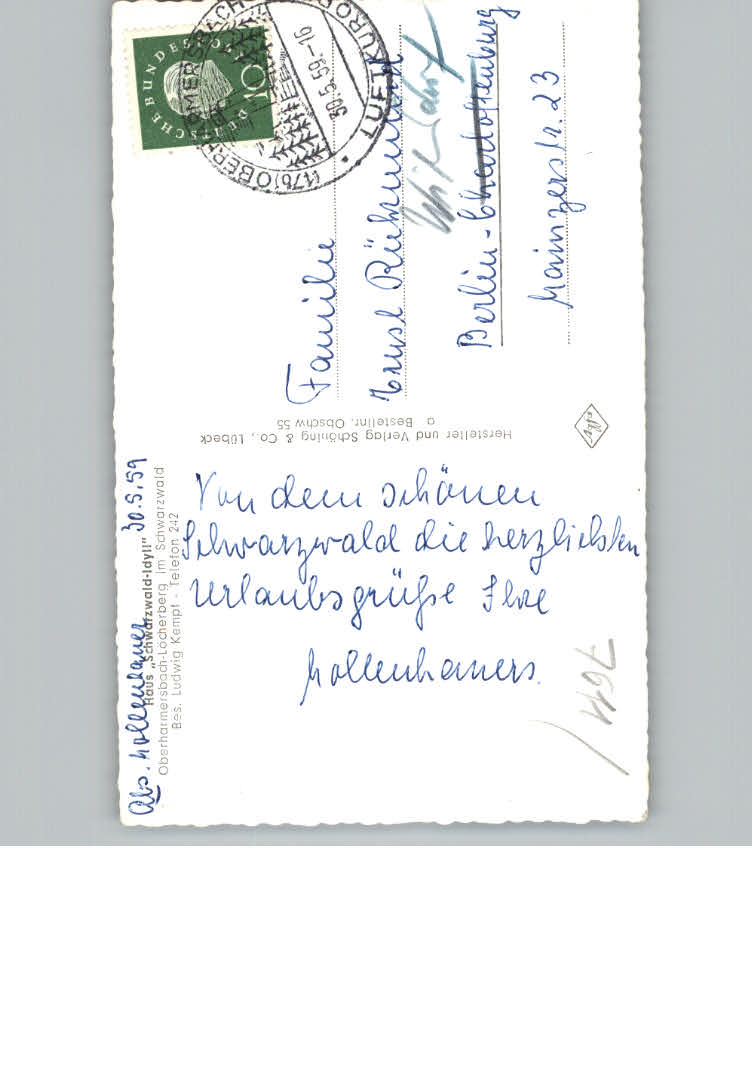 Abs. Mollenhauer 30.5.59
Haus „Schwarzwald-Idyll"
Oberharmersbach-Löcherberg im Schwarzwald
Bes. Ludwig Kempf - Telefon 242
Von dem schönen
Schwarzwald die herzlichsten
Urlaubsgrüße Ihre
Mollenhauers.
7611
Hersteller und Verlag Schöning & Co., Lübeck
a Bestellnr. Obschw 55
DEUTSCHE BUNDESPOST
10
(17b) OBERHARMERSBACH
LUFTKURORT
30.5.59.-16
Familie
Ernst
Berlin-Charlottenburg
Mainzerstr. 23